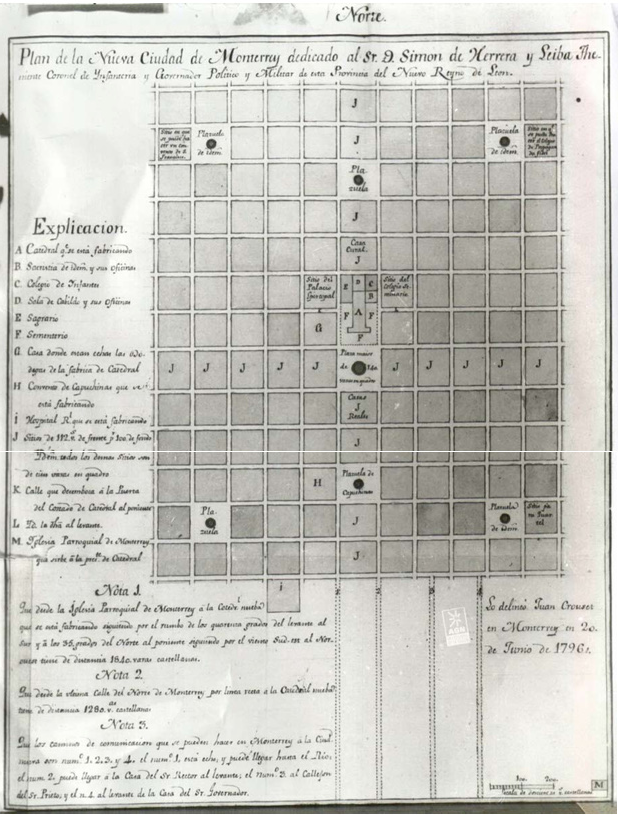 Norte.
Plan de la Nueva Ciudad de Monterrey dedicado al Sr. D. Simon de Herrera y Leiba The.
niente Coronel de Ynfanteria y Governador Politico y Militar de esta Provincia del Nuevo Reyno de Leon.
J
Plazuela
de idem.
J
Plazuela
de idem.
Pla
zuela
J
Explicacion.
A Catedral qe. se está fabricando
B Sacristia de idem. y sus Oficinas
C Colegio de Infantes
D Sala de Cabildo y sus Oficinas
E Sagrario
F Sementerio
G Casa donde estan echas las
de la fabrica de Catedral
H Convento de Capuchinas que se
está fabricando
i Hospital Rl. que se está fabricando
J Sitios de 112 vs. de frente pr. 100 de fondo
Ydem todos los demas Sitios son
de cien varas en quadro
K Calle que desemboca á la Puerta
del Costado de Catedral al poniente
L Yd. la otra al levante.
M Iglesia Parroquial de Monterrey
que sirve á la de Catedral
Casa
Cural.
J
Sitio del
Palacio
Episcopal
E D C B
F A F
F F
Sitio del
Colegio Se
minario
K
L
G
J J J J J
Plaza maior
de
varas en quadro
J J J J J
Casas
J
Reales
J
H
Plazuela de
Capuchinas
Pla
zuela
J
Plazuela
de idem
Sitio pa.
un Quar
tel
J
i
1 2 3 4
Nota 1.
Que desde la Iglesia Parroquial de Monterrey á la Catedl. nueba
que se está fabricando siguiendo por el rumbo de los quarenta grados del levante al
Sur y á los 35 grados del Norte al poniente siguiendo por el viento Sud-est al Nor
oeste tiene de distancia 1840 varas castellanas.
Nota 2.
Que desde la ultima Calle del Norte de Monterrey por linea recta á la Catedral nueba
tiene de distancia 1280 vas. castellanas
Nota 3.
Que los caminos de comunicacion que se pueden hacer en Monterrey á la Ciud.
nueva son numos. 1. 2. 3. y 4. el num. 1. está echo, y puede llegar hasta el Rio,
el num. 2. puede llegar á la Casa del Sr. Rector al levante; el num. 3. al Callejon
del Sr. Prieto; y el n. 4. al levante de la Casa del Sr. Governador.
Lo delineó Juan Crouset
en Monterrey en 20.
de Junio de 1796.
AGN
M